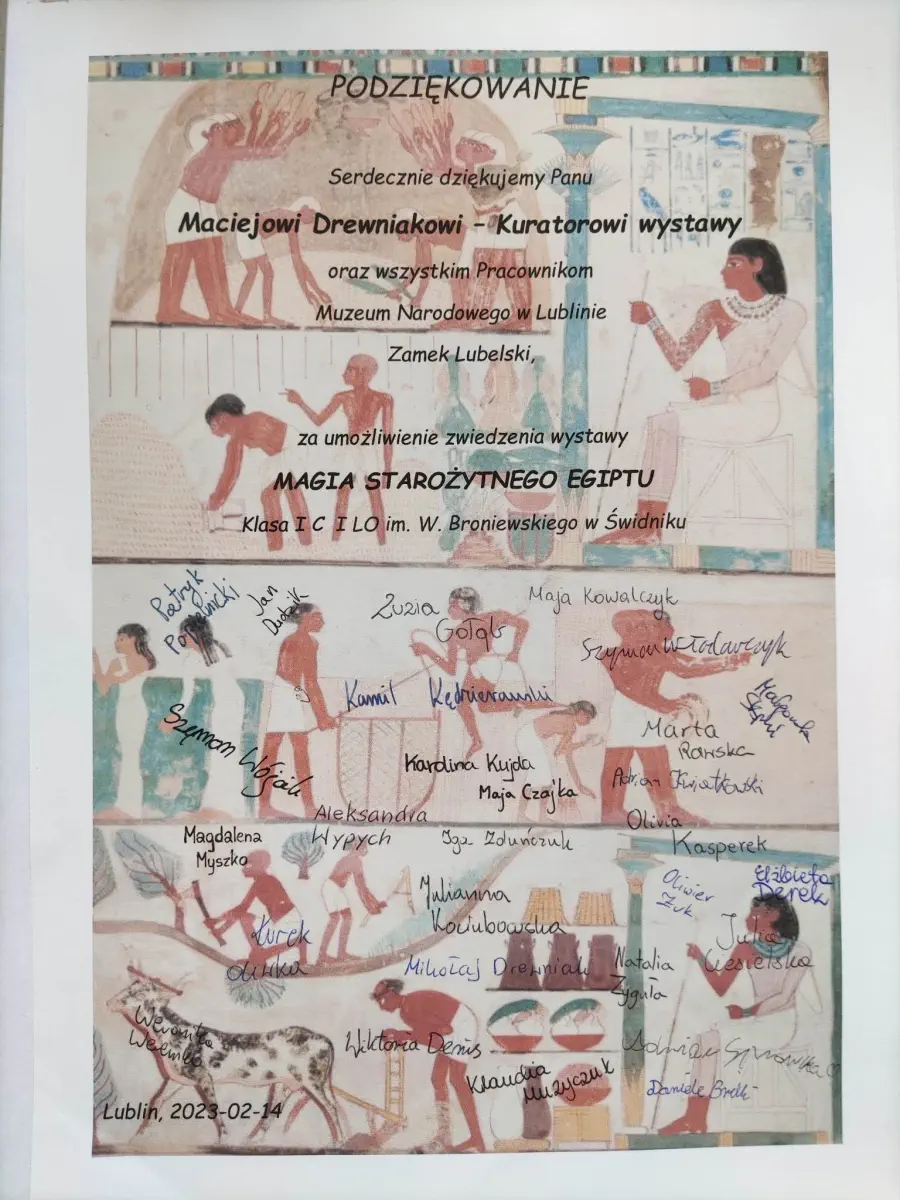 PODZIĘKOWANIE
Serdecznie dziękujemy Panu
Maciejowi Drewniakowi – Kuratorowi wystawy
oraz wszystkim Pracownikom
Muzeum Narodowego w Lublinie
Zamek Lubelski,
za umożliwienie zwiedzenia wystawy
MAGIA STAROŻYTNEGO EGIPTU
Klasa I C I LO im. W. Broniewskiego w Świdniku
Patryk
Jan
Dudzik
Zuzia
Gołąb
Maja Kowalczyk
Szymon Włodarczyk
Kamil
Szymon Wójcik
Marta
Rawska
Karolina Kujda
Maja Czajka
Adrian Kwiatkowski
Aleksandra
Wypych
Olivia
Kasperek
Magdalena
Myszko
Iga Zduńczuk
Elżbieta
Derek
Oliwier
Żuk
Julianna
Kociubowska
Żurek
Oliwka
Julia
Mikołaj Drewniak
Natalia
Zyguła
Weronika
Wiktoria Denis
Klaudia
Muzyczuk
Lublin, 2023-02-14